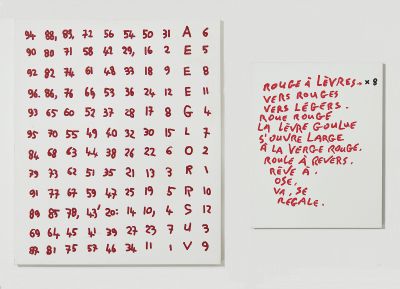 94 88, 83, 72 56 54 50 31 A 6
90 80 71 58 42 29, 16 2 E 5
92 82 74 61 48 33 18 9 E 8
96 86, 76 69 53 36 24 12 E 11
93 65 60 52 37 28 17 8 G 4
95 70 55 49 40 32 30 15 L 7
84 68 63 44, 38 26 22 6 O 2
79 73 62 51 35 21 13 3 R 1
91 77 67 59 47 25 19 5 R 10
89 85 78, 43' 20: 14 10, 4 S 12
69 64 45 41 39 27 23 7 U 3
87 81 75 57 46 34 11 1 V 9
ROUGE À LÈVRES. × 8
VERS ROUGES
VERS LÉGERS.
ROUE ROUGE
LA LÈVRE GOULUE
S'OUVRE LARGE
À LA VERGE ROUGE.
ROULE À REVERS.
RÊVE À.
OSE.
VA, SE
RÉGALE.